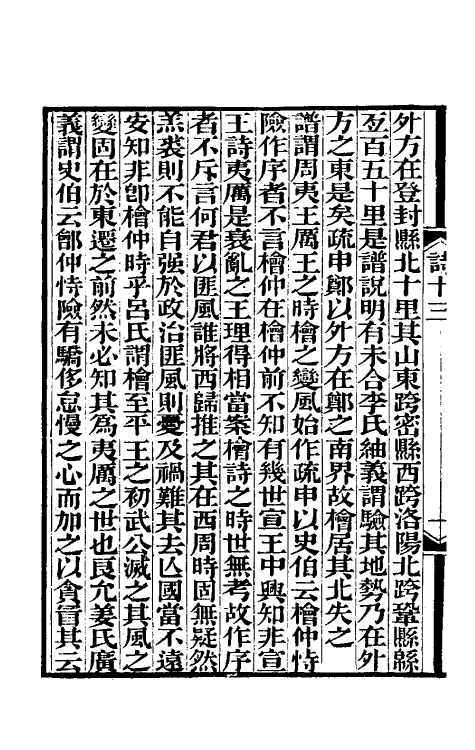 外方在登封縣北十里其山東跨密縣西跨洛陽北跨鞏縣緜
亙百五十里是譜說明有未合李氏紬義謂驗其地勢乃在外
方之東是矣疏申鄭以外方在鄭之南界故檜居其北失之
譜謂周夷王厲王之時檜之變風始作疏申以史伯云檜仲恃
險作序者不言檜仲在檜仲前不知有幾世宣王中興知非宣
王詩夷厲是衰亂之王理得相當案檜詩之時世無考故作序
者不斥言何君以匪風誰將西歸推之其在西周時固無疑然
羔裘則不能自强於政治匪風則憂及禍難其去亾國當不遠
安知非卽檜仲時乎呂氏謂檜至平王之初武公滅之其風之
變固在於東遷之前然未必知其為夷厲之世也良允姜氏廣
義謂史伯云鄶仲恃險有驕侈怠慢之心而加之以貪冒其云
詩十三
十一